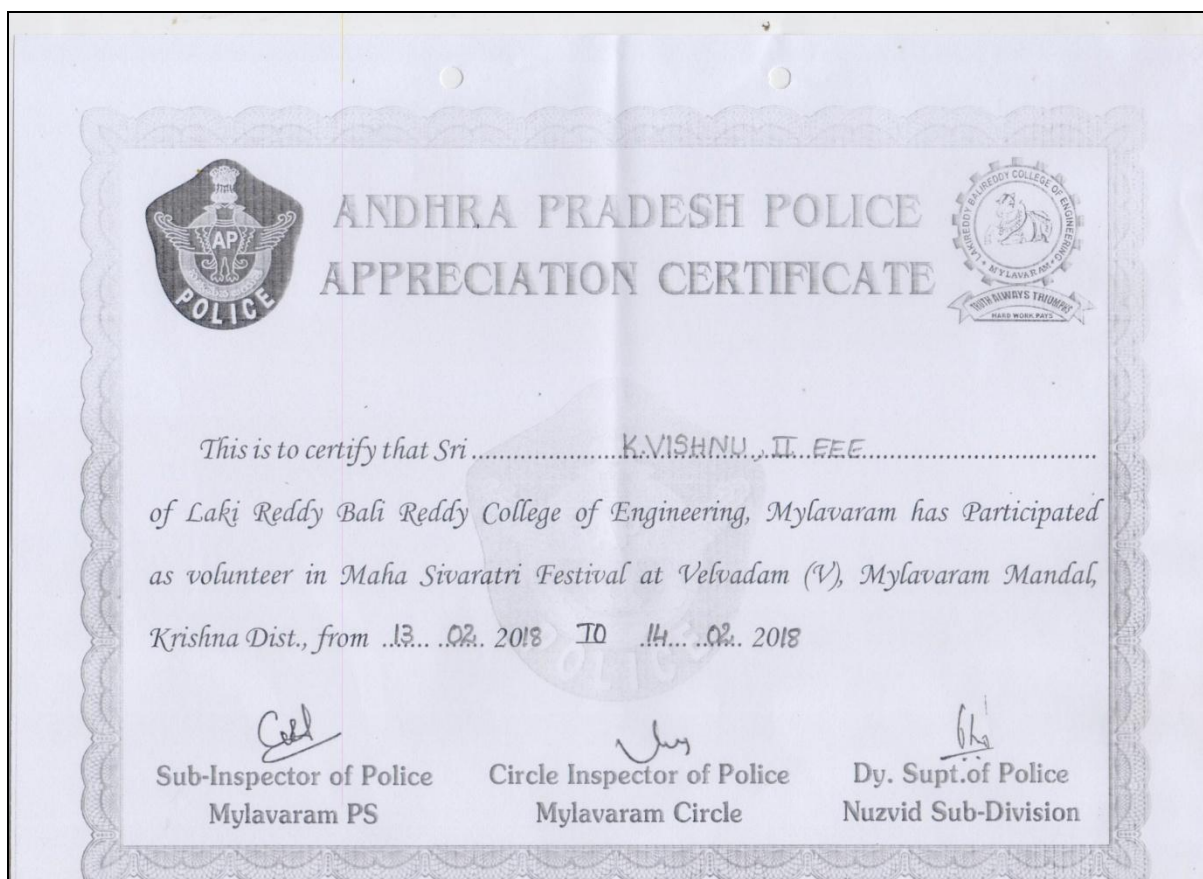 ANDHRA PRADESH POLICE
APPRECIATION CERTIFICATE
AP
POLICE
LAKIREDDY BALIREDDY COLLEGE OF ENGINEERING
MYLAVARAM
TRUTH ALWAYS TRIUMPHS
HARD WORK PAYS
This is to certify that Sri ..................... K.VISHNU., II EEE .....................................
of Laki Reddy Bali Reddy College of Engineering, Mylavaram has Participated
as volunteer in Maha Sivaratri Festival at Velvadam (V), Mylavaram Mandal,
Krishna Dist., from ..13... ..02.. 2018 TO .14.... ..02.. 2018
POLICE
Sub-Inspector of Police
Mylavaram PS
Circle Inspector of Police
Mylavaram Circle
Dy. Supt.of Police
Nuzvid Sub-Division